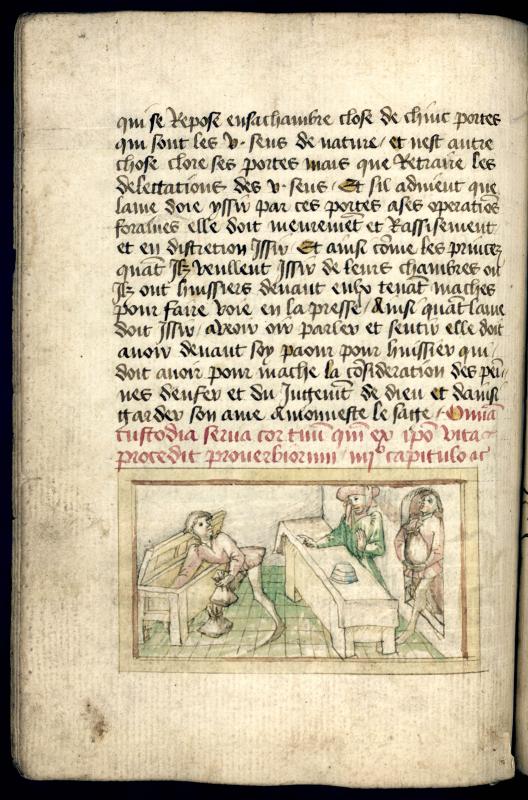 qui se Repose en sa chambre close de chinc portes
qui sont les v. sens de nature / et nest autre
chose clore ses portes mais que Retraire les
delectations des v. sens / Et sil advient que
lame doie yssir par ces portes a ses operatiõs
foraines elle doit meurement et Rassisement
et en discretion Issir Et ainsi cõme les princez
quãt Ilz veullent Issir de leurs chambres ou
Ilz ont huissiers devant eulx tenãt maches
pour faire voie en la presse / Ainsi quãt lame
doit Issir / a veoir oir parler et sentir elle doit
avoir devant soy paour pour huissier qui
doit avoir pour mache la cõsideration des pei-
nes denfer et du Jugemt de dieu et dainsi
garder son ame Amonneste le sage / Omia
custodia serva cor tuũ qm̃ ex ipõ vita
procedit proverbiorum / iiijº capitulo